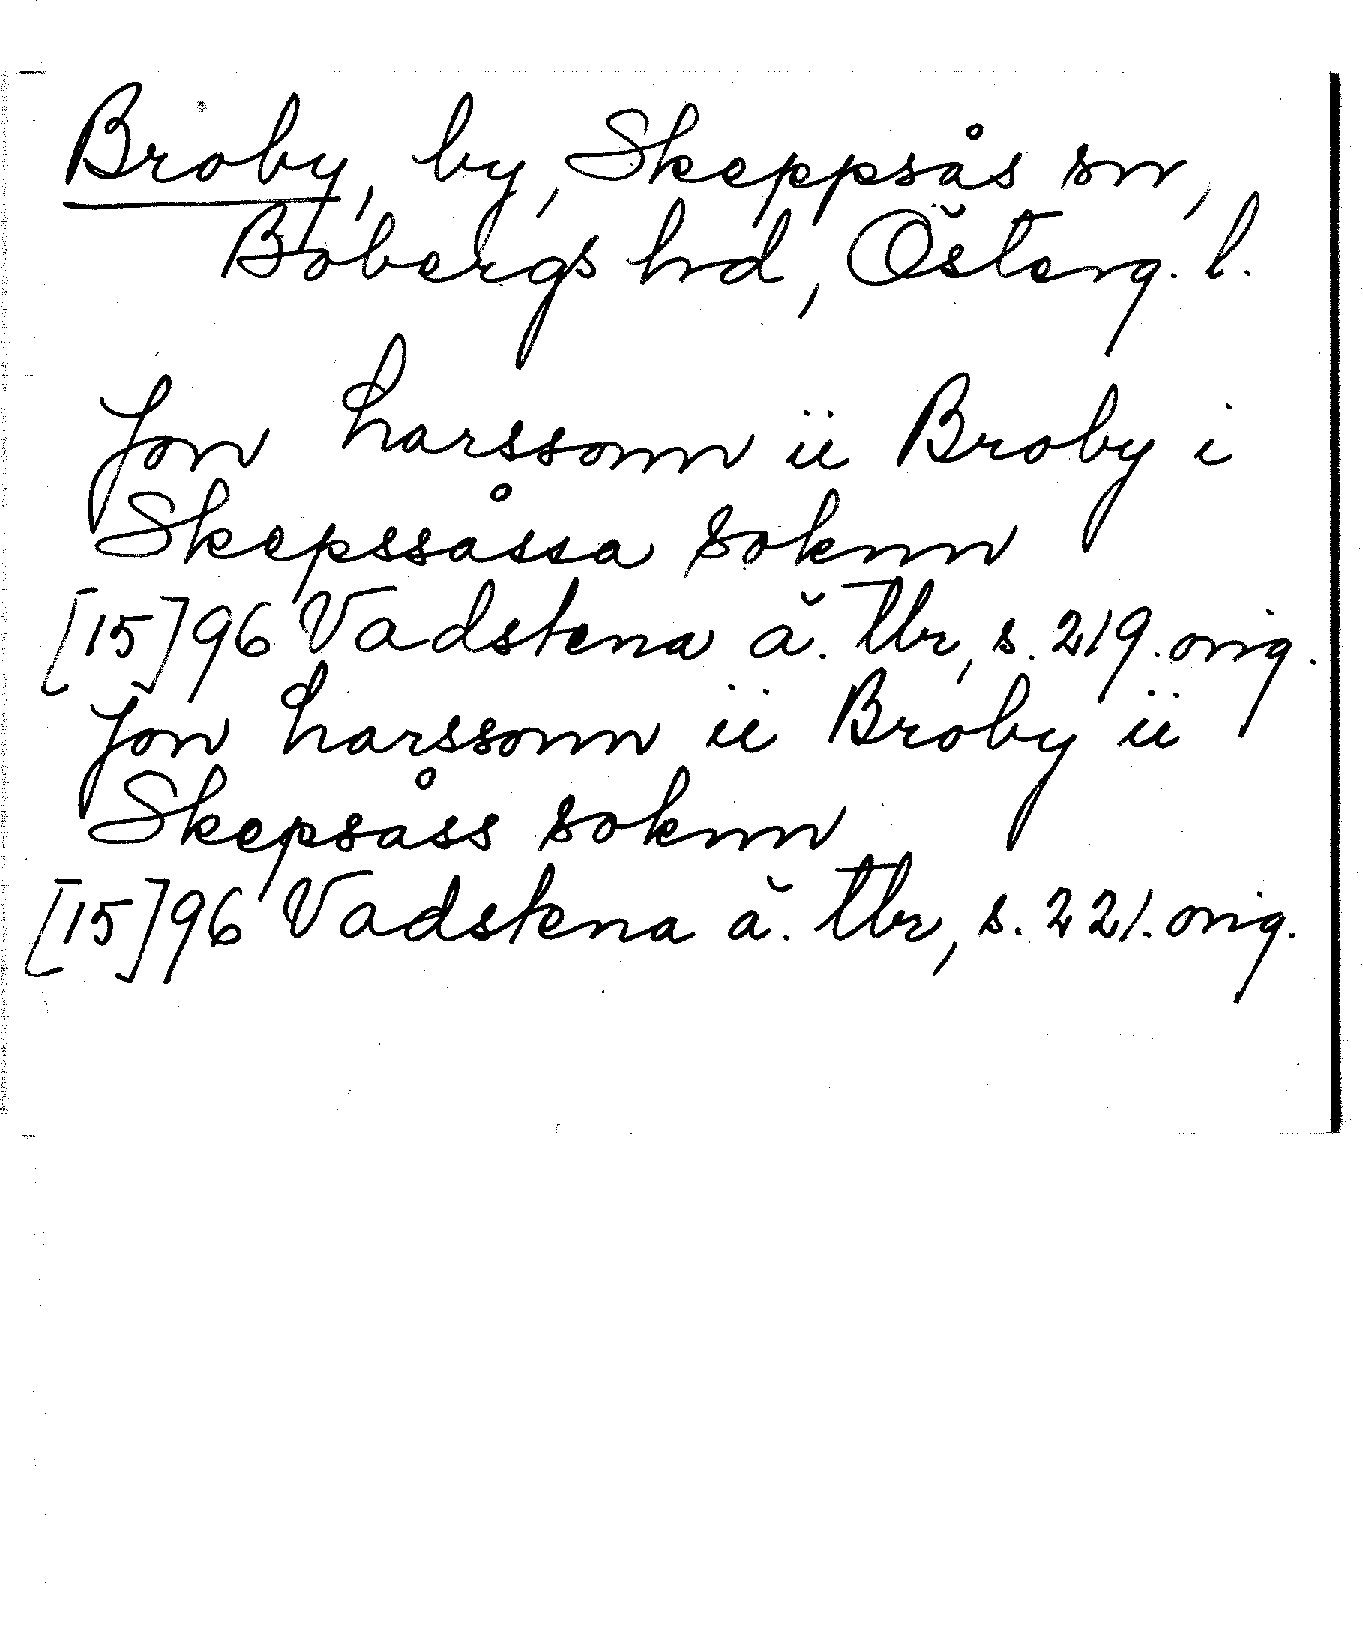 Broby, by, Skeppsås sn,
Bobergs hd, Österg. l.
Jon Larssonn ii Broby i
Skepssåssa soknn
[15]96 Vadstena ä. tbr, s. 219. orig.
Jon Larssonn ii Broby ii
Skepsåss soknn
[15]96 Vadstena ä. tbr, s. 221. orig.